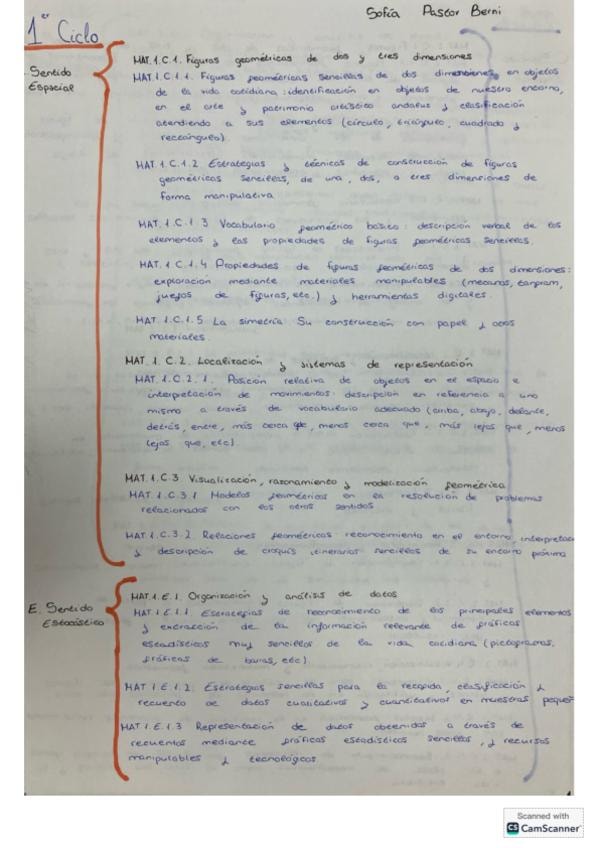 Sofía Pastor Berni
1er Ciclo
Sentido
Espacial
MAT.1.C.1. Figuras geométricas de dos y tres dimensiones
MAT.1.C.1.1. Figuras geométricas sencillas de dos dimensiones en objetos
de la vida cotidiana: identificación en objetos de nuestro entorno,
en el arte y patrimonio artístico andaluz y clasificación
atendiendo a sus elementos (círculo, triángulo, cuadrado y
rectángulo).
MAT.1.C.1.2. Estrategias y técnicas de construcción de figuras
geométricas sencillas, de una, dos, o tres dimensiones de
forma manipulativa.
MAT.1.C.1.3 Vocabulario geométrico básico: descripción verbal de los
elementos y las propiedades de figuras geométricas sencillas.
MAT.1.C.1.4 Propiedades de figuras geométricas de dos dimensiones:
exploración mediante materiales manipulables (mecanos, tangram,
juegos de figuras, etc.) y herramientas digitales.
MAT.1.C.1.5 La simetría. Su construcción con papel y otros
materiales.
MAT.1.C.2. Localización y sistemas de representación
MAT.1.C.2.1. Posición relativa de objetos en el espacio e
interpretación de movimientos: descripción en referencia a uno
mismo a través de vocabulario adecuado (arriba, abajo, delante,
detrás, entre, más cerca que, menos cerca que, más lejos que, menos
lejos que, etc).
MAT.1.C.3 Visualización, razonamiento y modelización geométrica
MAT.1.C.3.1 Modelos geométricos en la resolución de problemas
relacionados con los otros sentidos
MAT.1.C.3.2. Relaciones geométricas reconocimiento en el entorno, interpretac
y descripción de croquis itinerarios sencillos de su entorno próximo
E. Sentido
Estocástico
MAT.1.E.1. Organización y análisis de datos
MAT.1.E.1.1. Estrategias de reconocimiento de los principales elementos
y extracción de la información relevante de gráficos
estadísticos muy sencillos de la vida cotidiana (pictogramas,
gráficas de barras, etc)
MAT.1.E.1.2. Estrategias sencillas para la recogida, clasificación y
recuento de datos cualitativos y cuantitativos en muestras peque
MAT.1.E.1.3 Representación de datos obtenidos a través de
recuentos mediante gráficos estadísticos sencillos, y recursos
manipulables y tecnológicos
Scanned with
CS CamScanner